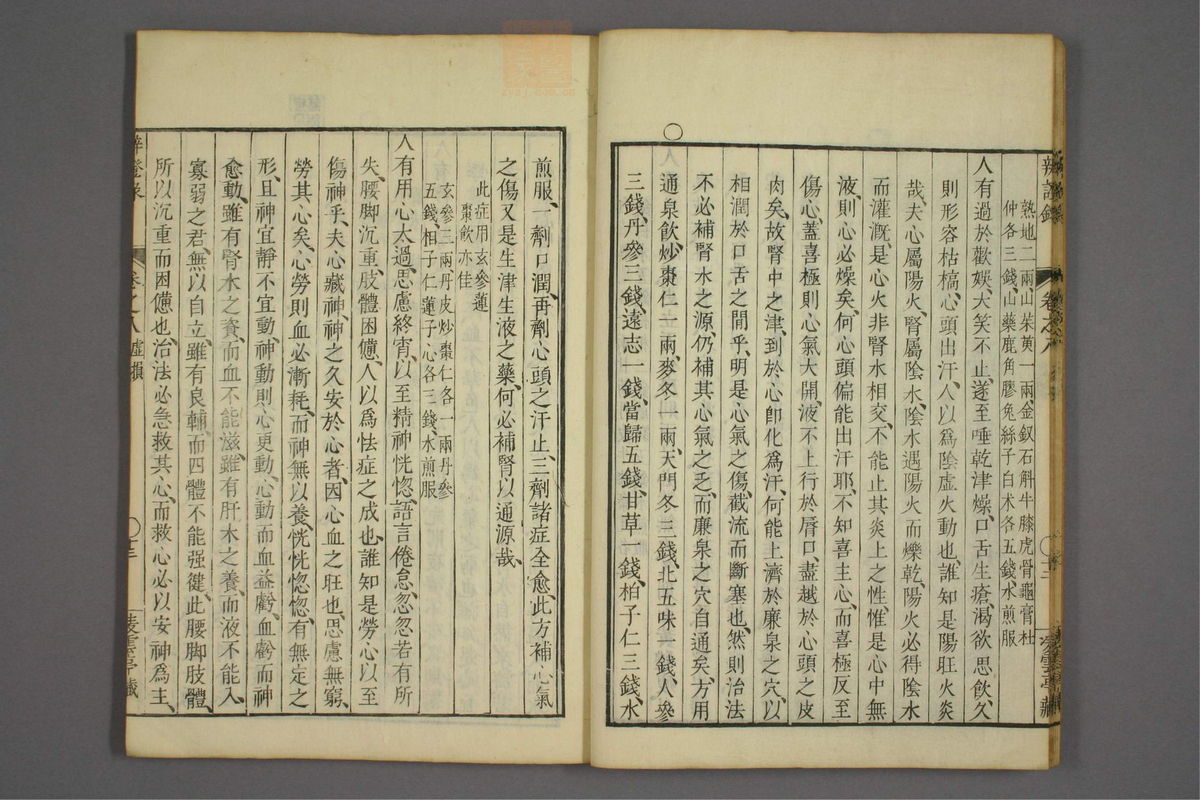 辨證錄 卷之八
熟地二兩山茱萸一兩金釵石斛牛膝虎骨龜膏杜
仲各三錢山藥鹿角膠兔絲子白术各五錢水煎服
人有過於歡娛大笑不止遂至唾乾津燥口舌生瘡渴欲思飲久
則形容枯槁心頭出汗人以爲陰虛火動也誰知是陽旺火炎
哉夫心屬陽火腎屬陰水陰水遇陽火而爍乾陽火必得陰水
而灌漑是心火非腎水相交不能止其炎上之性惟是心中無
液則心必燥矣何心頭偏能出汗耶不知喜主心而喜極反至
傷心蓋喜極則心氣大開液不上行於唇口盡越於心頭之皮
肉矣故腎中之津到於心卽化爲汗何能上濟於廉泉之穴以
相潤於口舌之間乎明是心氣之傷截流而斷塞也然則治法
不必補腎水之源仍補其心氣之乏而廉泉之穴自通矣方用
〇通泉飲炒棗仁一兩麥冬一兩天門冬三錢北五味一錢人參
三錢丹參三錢遠志一錢當歸五錢甘草一錢柏子仁三錢水
煎服一劑口潤再劑心頭之汗止三劑諸症全愈此方補心氣
之傷又是生津生液之藥何必補腎以通源哉
此症用玄參蓮
棗飲亦佳
玄參三兩丹皮炒棗仁各一兩丹參
五錢柏子仁蓮子心各三錢水煎服
人有用心太過思慮終宵以至精神恍惚語言倦怠忽忽若有所
失腰脚沉重肢體困憊人以爲怯症之成也誰知是勞心以至
傷神乎夫心藏神神之久安於心者因心血之旺也思慮無窮
勞其心矣心勞則血必漸耗而神無以養恍恍惚惚有無定之
形且神宜靜不宜動神動則心更動心動而血益虧血虧而神
愈動雖有腎水之資而血不能滋雖有肝木之養而液不能入
寡弱之君無以自立雖有良輔而四體不能强健此腰脚肢體
所以沉重而困憊也治法必急救其心而救心必以安神爲主
卷之八 虛損